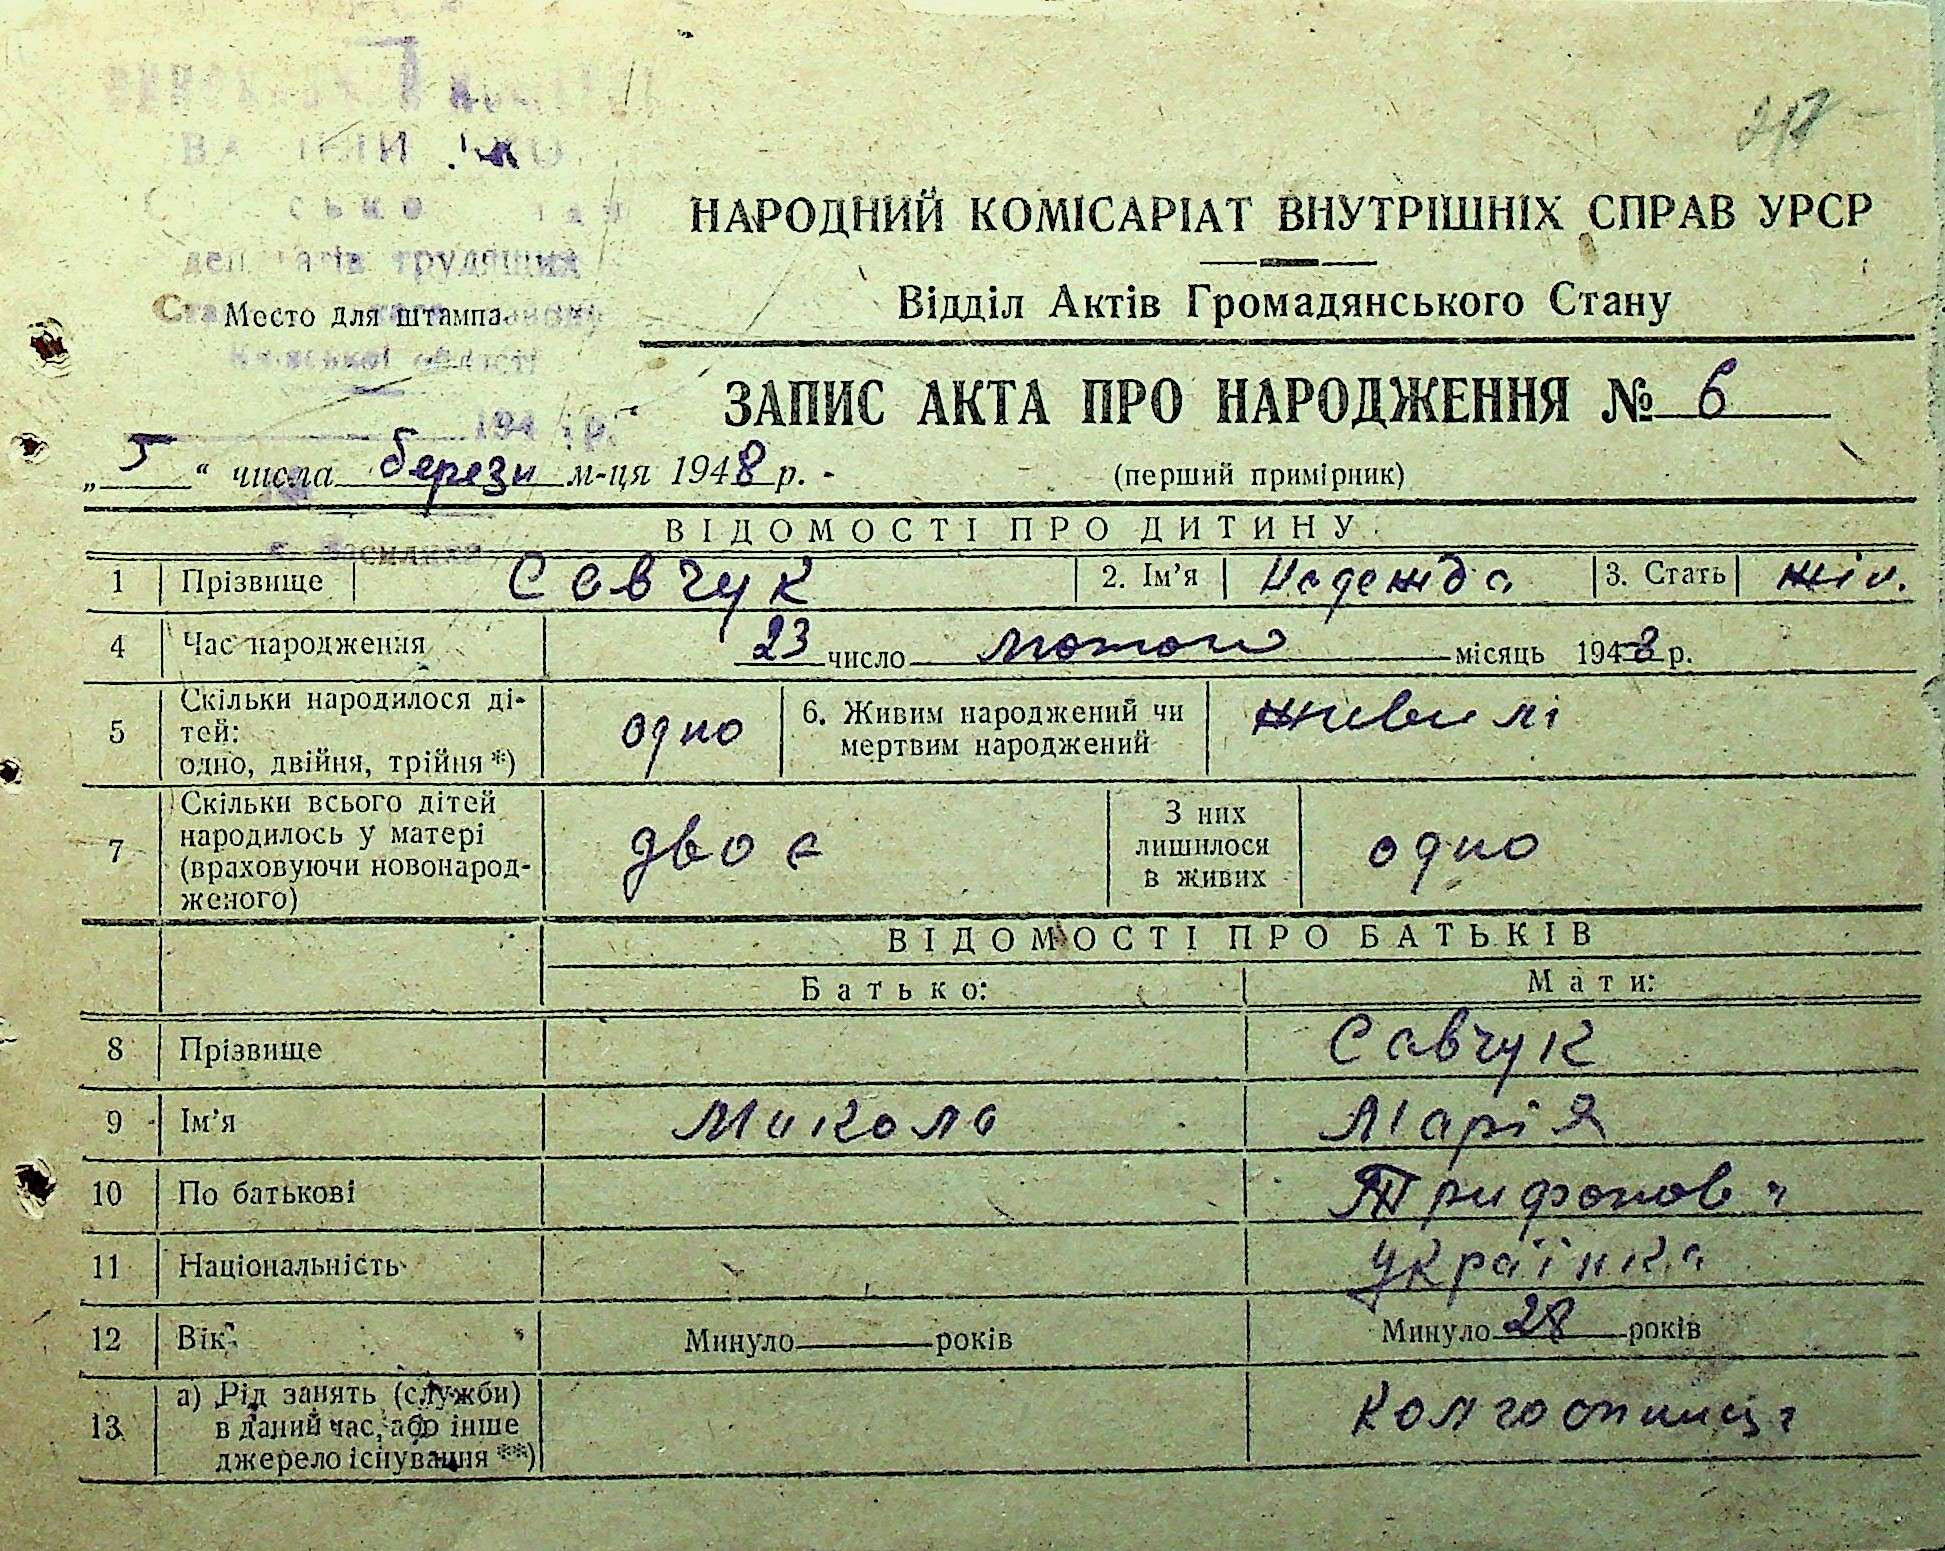 НАРОДНИЙ КОМІСАРІАТ ВНУТРІШНІХ СПРАВ УРСР
депутатів трудящих
Відділ Актів Громадянського Стану
Место для штампа
Київської області
ЗАПИС АКТА ПРО НАРОДЖЕННЯ № 6
194 р.
„ 5 “ числа березн м-ця 1948 р.
(перший примірник)
ВІДОМОСТІ ПРО ДИТИНУ
1 Прізвище Савчук 2. Ім’я Надежда 3. Стать жін.
4 Час народження 23 число лютого місяць 1948 р.
5 Скільки народилося ді-
тей:
одно, двійня, трійня *) одно
6. Живим народжений чи
мертвим народжений
7 Скільки всього дітей
народилось у матері
(враховуючи новонарод-
женого) двоє
З них
лишилося
в живих одно
ВІДОМОСТІ ПРО БАТЬКІВ
Батько: Мати:
8 Прізвище Савчук
9 Ім’я Микола Марія
10 По батькові Трифонов
11 Національність українка
12 Вік Минуло років Минуло 28 років
13 а) Рід занять (служби)
в даний час, або інше
джерело існування **) колгоспниця